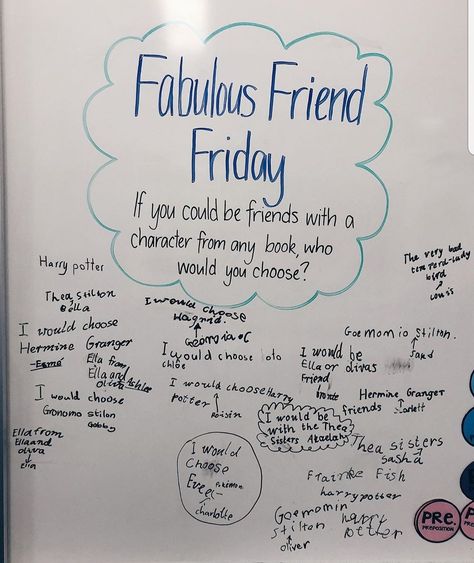 Fabulous Friend
Friday
If you could be friends with a
character from any book, who
would you choose?
Harry potter
The very bad
temperd-lady
bird
Thea stilton
Bella
I would choose
Hagrid.
Georgia
I would choose
Hermine Granger
Esmé
Ella from
Ella and
olivia
I would choose
chloe
I would be
Ella or divas
Friend
Goemom io Stilton.
I would
choose
Gronomo stilon
Gabby
I would choose Harry
Potter
Roisin
Hermine Granger
Scarlett
I would be friends
with the Thea
Sisters
Thea sisters
sasha
Ella from
Ella and
oliva
I would
choose
Evee
Pokémon
charlotte
Fish
harry potter
Goemomin
Stilton
oliver
harry
Potter
PRE.
PREPOSITION